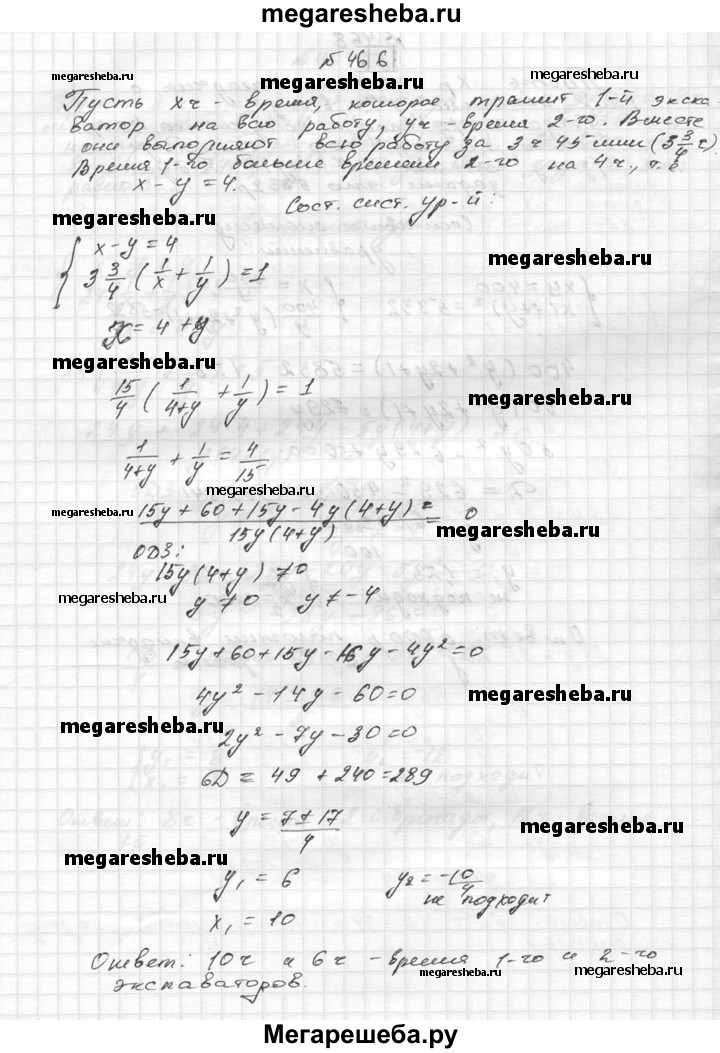 megaresheba.ru
№ 466
megaresheba.ru megaresheba.ru megaresheba.ru
Пусть x ч - время, которое тратит 1-й экска
ватор на всю работу, y ч - время 2-го. Вместе
они выполняют всю работу за 3 ч 45 мин (3 3/4 ч).
Время 1-го больше времени 2-го на 4 ч., т.е
x - y = 4.
Сост. сист. ур-й:
megaresheba.ru
{ x - y = 4
3 3/4 (1/x + 1/y) = 1
megaresheba.ru
x = 4 + y
megaresheba.ru
15/4 (1/(4+y) + 1/y) = 1
megaresheba.ru
1/(4+y) + 1/y = 4/15
megaresheba.ru
(15y + 60 + 15y - 4y(4+y))/(15y(4+y)) = 0
megaresheba.ru megaresheba.ru
ОДЗ:
15y(4+y) ≠ 0
megaresheba.ru megaresheba.ru
y ≠ 0 y ≠ -4
15y + 60 + 15y - 16y - 4y² = 0
4y² - 14y - 60 = 0
megaresheba.ru
megaresheba.ru
2y² - 7y - 30 = 0
D = 49 + 240 = 289
y = (7 ± 17)/4
megaresheba.ru
megaresheba.ru
y₁ = 6 y₂ = -10/4
не подходит
x₁ = 10
Ответ: 10 ч и 6 ч - время 1-го и 2-го
megaresheba.ru megaresheba.ru
экскаваторов.
Мегарешеба.ру